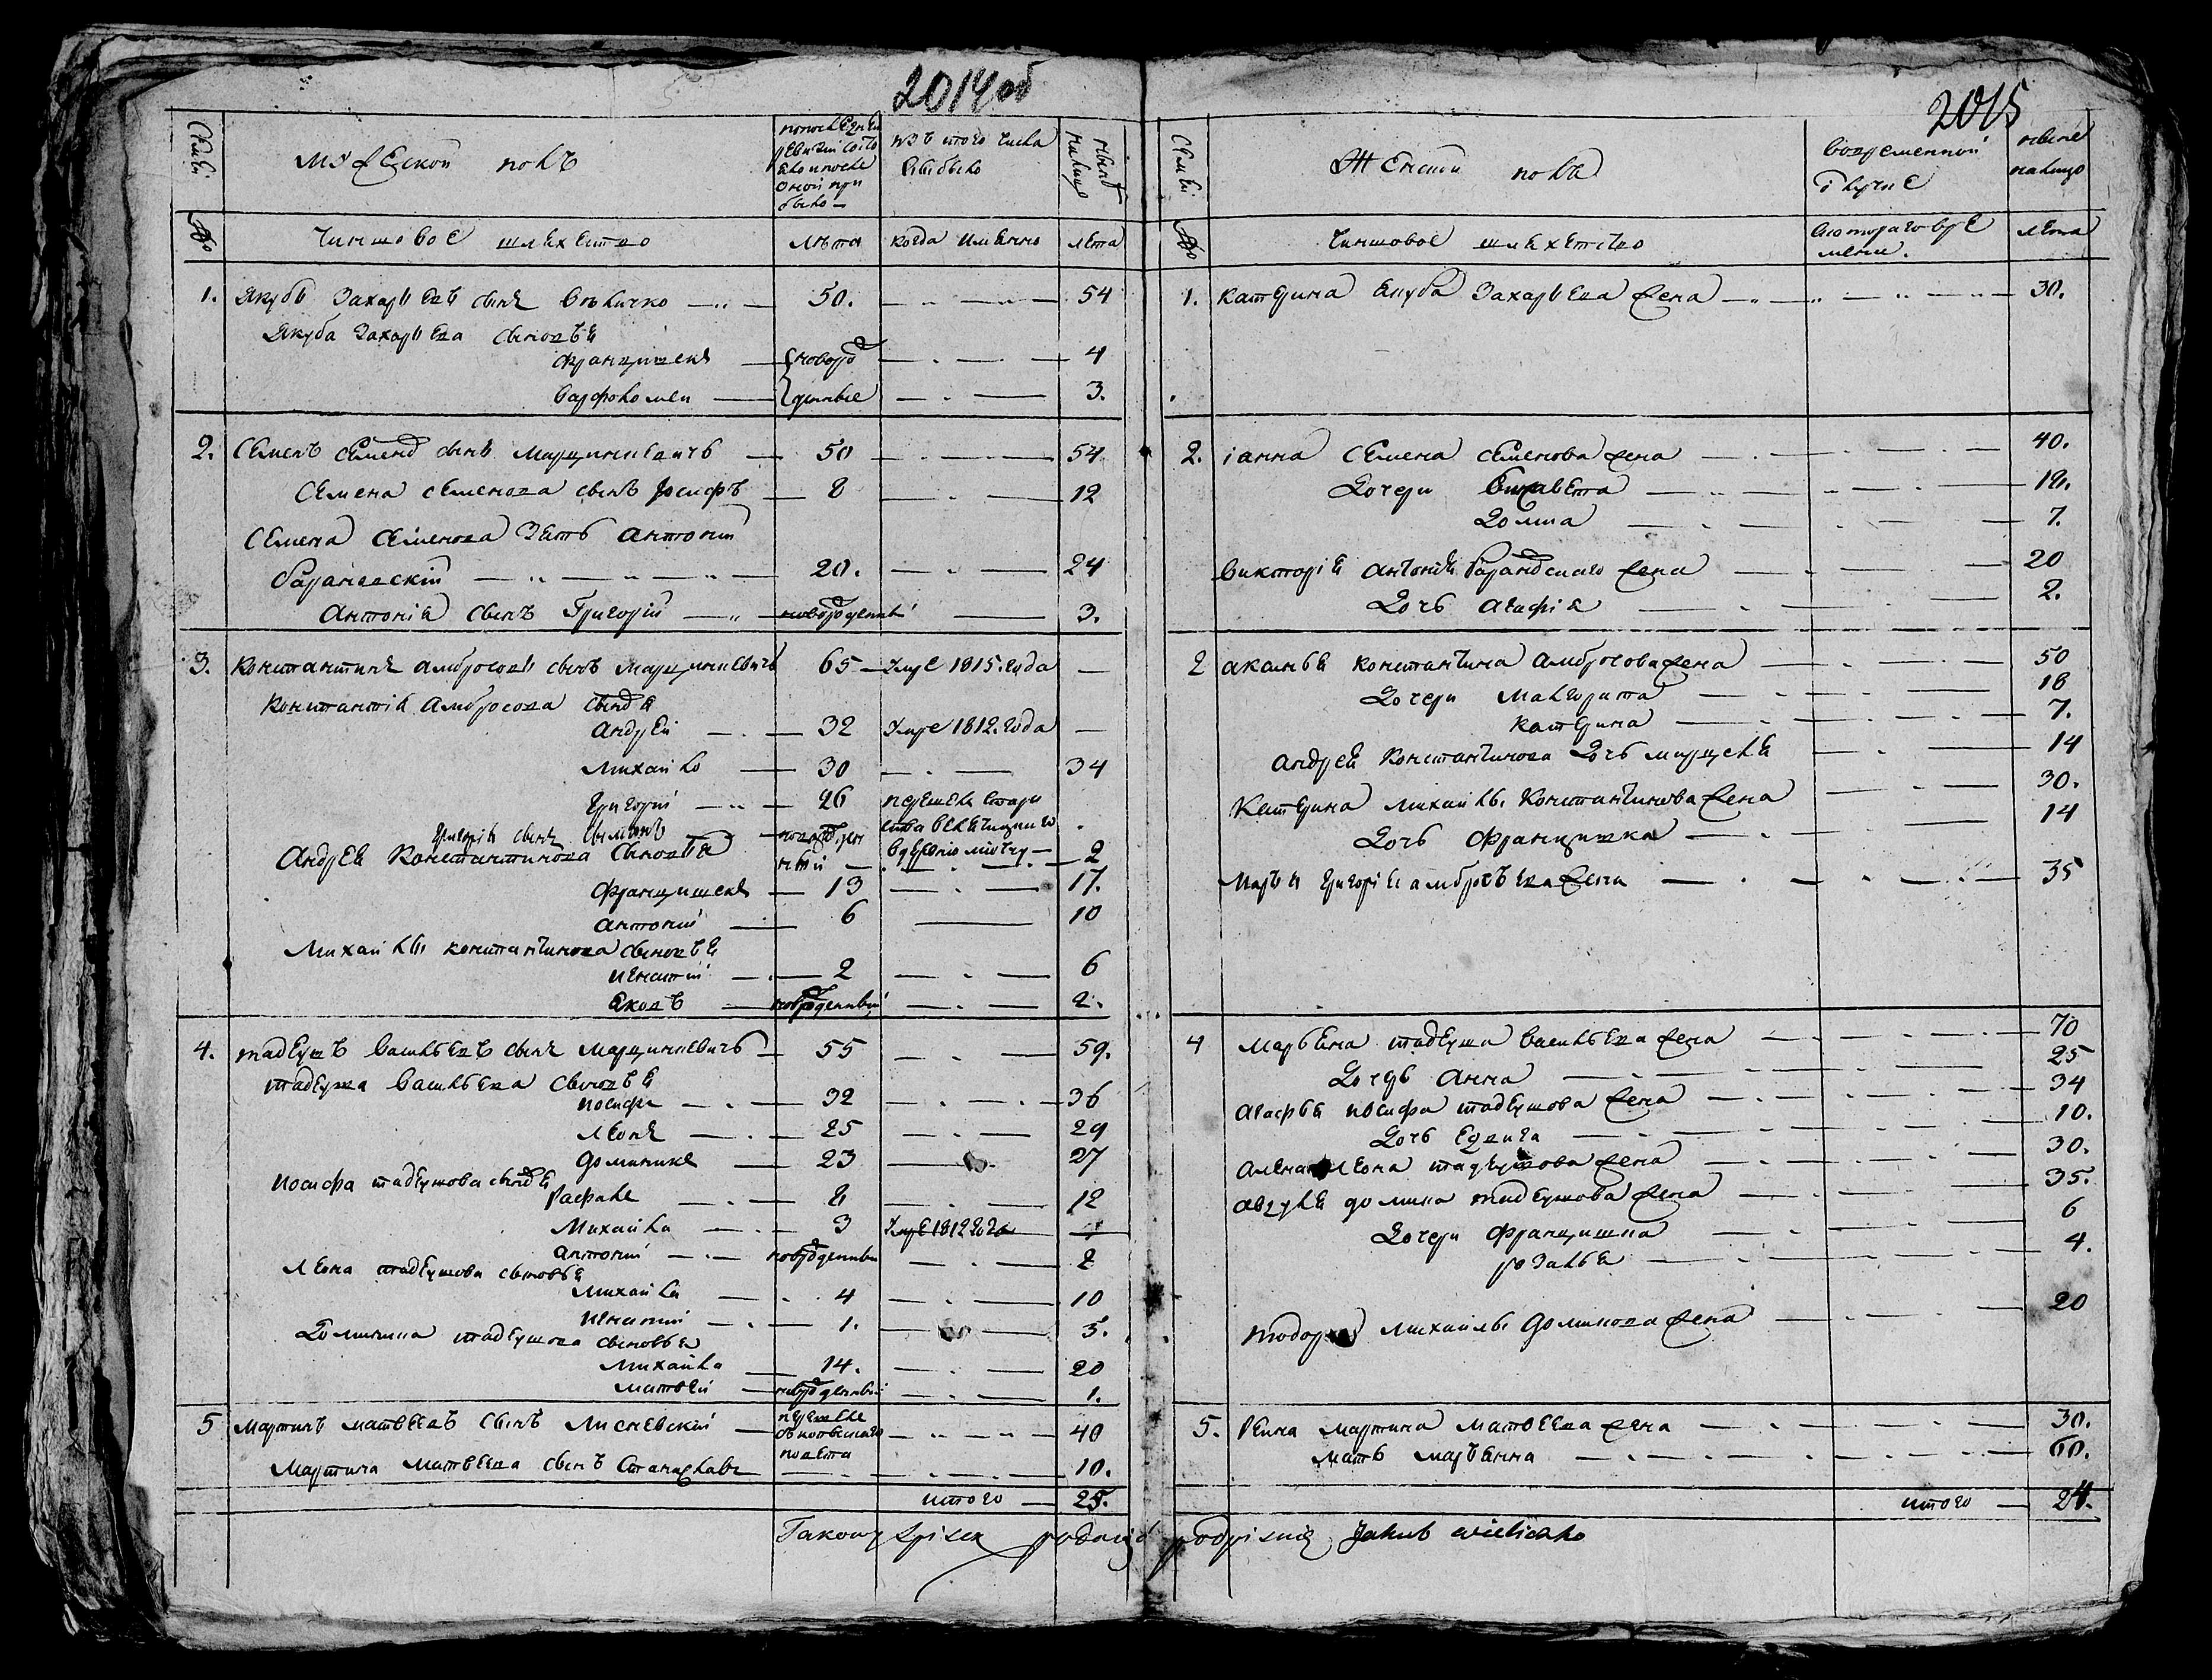 2014 об
Семьи
Мужеской полъ
по последней ревизии состояло и после оной прибыло
изъ того числа выбыло
ныне налицо
№
Чиншовое шляхетство
Лѣта
когда имянно
лета
1. Якубъ Захарьевъ сынъ Величко 50. 54
Якуба Захарьева сыновья
Францишекъ новоро 4
Варфоломей жденные 3.
2. Семенъ Семеновъ сынъ Марцинкевичъ 50 54
Семена Семенова сынъ Іосифъ 8 12
Семена Семенова Зять Антоній
Барановскій 20. 24
Антонія сынъ Григорій новорожденный 3.
3. Константинъ Амбросовъ сынъ Марцинкевичъ 65 Умре 1815. года
Константія Амбросова сыновя
Андрей 32 Умре 1812. года
Михайло 30 34
Григорій 26 перешелъ
Григорія сынъ
Андрея Константинова сыновья 2
Францишекъ 13 17.
Антоній 6 10
Михайлы Константинова сыновья
Игнатій 2 6
Яковъ новорожденный 2.
4. Тадеушъ Васильевъ сынъ Марцинкевичъ 55 59.
Тадеуша Васильева сыновья
Иосифъ 32 36
Леонъ 25 29
Доминикъ 23 27
Иосифа Тадеушова сыновя
Рафалъ 8 12
Михайла 3 Умре 1812 года
Антоній новорожденный 2
Леона Тадеушова сыновья
Михайла 4 10
Игнатій 1. 5.
Доминика Тадеушова сыновья
Михайла 14. 20
Матвей новорожденный 1.
5 Мартинъ Матвеевъ сынъ Лисневскій перешелъ повета 40
Мартина Матвеева сынъ Станиславъ 10.
итого 25.
2015
Семьи
Женский полъ
во временной отлучке
ныне налицо
№
Чиншовое шляхетство
с которого времени.
лета
1. Катерина Якуба Захарьева жена 30.
2. Іанна Семена Семенова жена 40.
Дочери 12.
Домна 7.
Викторія Антонія Барановскаго жена 20
Дочь Агафія 2.
2 Аксинья Константина Амбросова жена 50
Дочери Малгорита 18
Катерина 7.
Андрея Константинова Дочь Марцеля 14
Катерина Михайлы Константинова жена 30.
Дочь Францишка 14
Марья Григорія Амбросьева жена 35
4 Марьяна Тадеуша Васильева жена 70
Дочерь Анна 25
Агафья Иосифа Тадеушова жена 34
Дочь Едвига 10.
Алена Леона Тадеушова жена 30.
Авдуля Домина Тадеушова жена 35.
Дочери Францишка 6
Розалья 4.
Тодора Михайлы Доминова жена 20
5. Реина Мартина Матвеева жена 30.
Мать Марьянна 60.
итого 24.
Takowy spisek podaiąc podpisuię Jakub Wieliczko